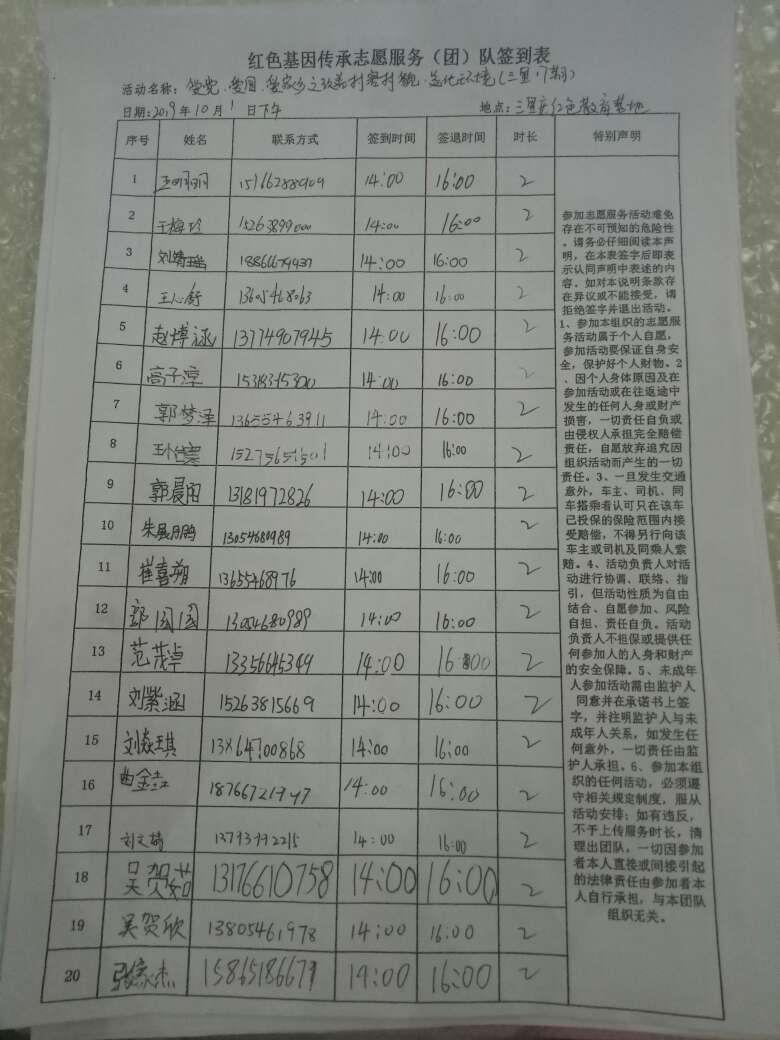 红色基因传承志愿服务（团）队签到表
活动名称：爱党、爱国、爱家乡之改善村容村貌、美化环境（三里
日期：2019年10月1日下午
地点：三里庄红色教育基地
序号 姓名 联系方式 签到时间 签退时间 时长 特别声明
1 14:00 16:00 2
2 王梅玲 15263899000 14:00 16:00 2
3 刘靖瑶 18866679437 14:00 16:00 2
4 王心舒 13605468063 14:00 16:00 2
5 赵博涵 13774907945 14:00 16:00 2
6 高子淳 15318315300 14:00 16:00 2
7 郭梦泽 13655463911 14:00 16:00 2
8 14:00 16:00 2
9 郭晨阳 13181972826 14:00 16:00 2
10 朱晨鹏 13054680989 14:00 16:00 2
11 崔喜翔 13655468976 14:00 16:00 2
12 郭圆圆 13054680989 14:00 16:00 2
13 范茂卓 13356645349 14:00 16:00 2
14 刘紫涵 15263815669 14:00 16:00 2
15 刘焱琪 14:00 16:00 2
16 曲金垚 18766721947 14:00 16:00 2
17 刘文婧 13793992215 14:00 16:00 2
18 吴贺茹 13176610758 14:00 16:00 2
19 吴贺欣 13805461978 14:00 16:00 2
20 张家杰 15865186671 14:00 16:00 2
参加志愿服务活动难免
存在不可预知的危险性
。请务必仔细阅读本声
明，在本表签字后即表
示认同声明中表述的内
容。如对本说明条款存
在异议或不能接受，请
拒绝签字并退出活动。
1、参加本组织的志愿服
务活动属于个人自愿，
参加活动要保证自身安
全，保护好个人财物。2
、因个人身体原因及在
参加活动或在往返途中
发生的任何人身或财产
损害，一切责任自负或
由侵权人承担完全赔偿
责任，自愿放弃追究因
组织活动而产生的一切
责任。3、一旦发生交通
意外，车主、司机、同
车搭乘者认可只在该车
已投保的保险范围内接
受赔偿，不得另行向该
车主或司机及同乘人索
赔。4、活动负责人对活
动进行协调、联络、指
引，但活动性质为自由
结合、自愿参加、风险
自担、责任自负。活动
负责人不担保或提供任
何参加人的人身和财产
的安全保障。5、未成年
人参加活动需由监护人
同意并在承诺书上签
字，并注明监护人与未
成年人关系，如发生任
何意外，一切责任由监
护人承担。6、参加本组
织的任何活动，必须遵
守相关规定制度，服从
活动安排；如有违反，
不予上传服务时长，清
理出团队，一切因参加
者本人直接或间接引起
的法律责任由参加者本
人自行承担，与本团队
组织无关。